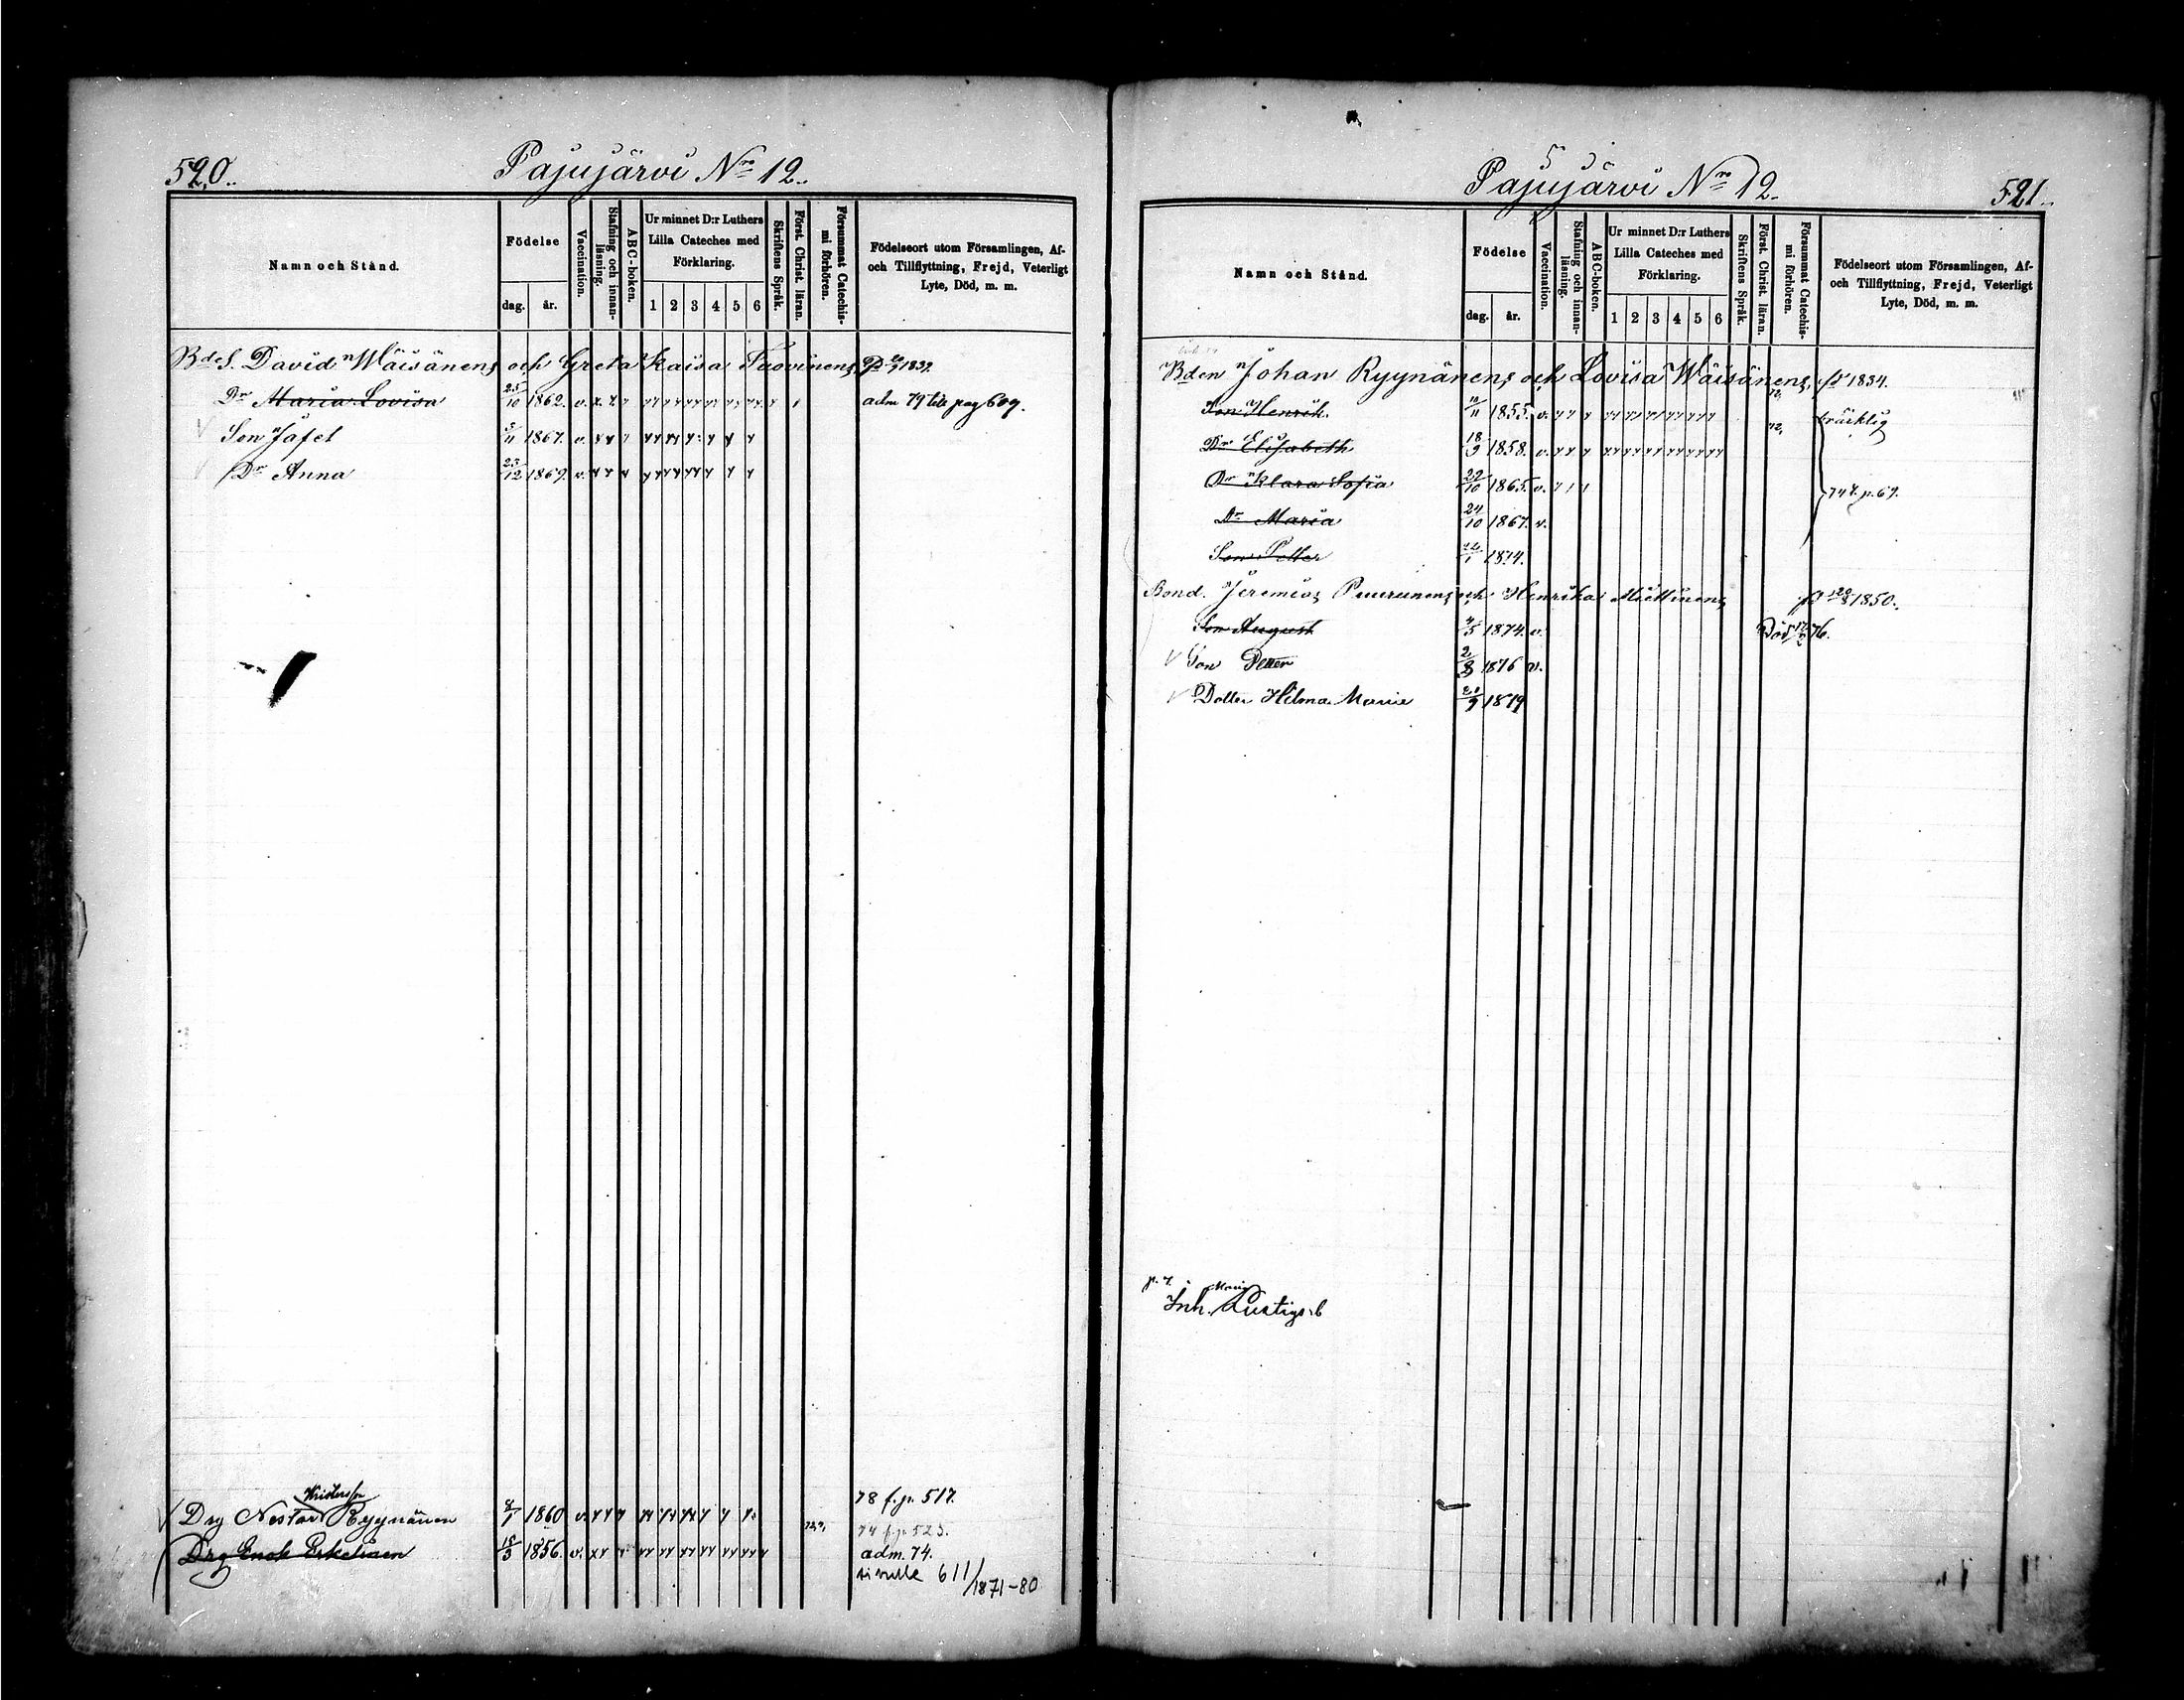 520.
Pajujärvi Nro 12.
Namn och Stånd.
Födelse
dag. år.
Vaccination.
Stafning och innanläsning.
ABC-boken.
Ur minnet D:r Luthers Lilla Cateches med Förklaring.
1 2 3 4 5 6
Skriftens Språk.
Först. Christ. läran.
Försummat Catechismi förhören.
Födelseort utom Församlingen, Af- och Tillflyttning, Frejd, Veterligt Lyte, Död, m. m.
BdeS. David Wäisänens och Greta Kaisa Tuovinens 1839.
Dr Maria Lovisa 25/10 1862. v. adm 79 till pag 609.
Son Jafet 5/11 1867. v.
Dr Anna 23/12 1869. v.
78 f. p. 517.
Kristersson
Drg Nestor Ryynänen 8/1 1860 v.
74 f. p. 523.
Drg Enok Eskelinen 18/3 1856. v. adm. 74.
sivulle 611/1871-80
Pajujärvi Nro 12.
521.
Namn och Stånd.
Födelse
dag. år.
Vaccination.
Stafning och innanläsning.
ABC-boken.
Ur minnet D:r Luthers Lilla Cateches med Förklaring.
1 2 3 4 5 6
Skriftens Språk.
Först. Christ. läran.
Försummat Catechismi förhören.
Födelseort utom Församlingen, Af- och Tillflyttning, Frejd, Veterligt Lyte, Död, m. m.
Bden Johan Ryynänens och Lovisa Wäisänens, 1834.
Son Henrik 1855. v.
Dr Elisabeth 18/9 1858. v.
Dr Klara Sofia 22/10 1865. v. 74 t. p. 69.
Dr Maria 24/10 1867. v.
Son Petter 1874.
Bond. Jeremias Puurunens och Henrika Miettinens 1850.
Son August 4/5 1874. v. Död 76.
Son Petter 2/8 1876 v.
Dotter Hilma Maria 21/9 1879
Maria
Inh. Lustig